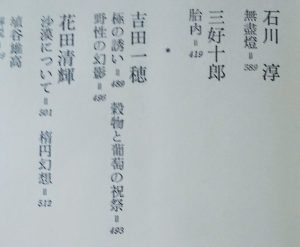 石川 淳
無盡燈＝389
三好十郎
胎内＝419
＊
吉田一穂
極の誘い＝489 穀物と葡萄の祝祭＝493
野性の幻影＝496
花田清輝
沙漠について＝501 楕円幻想＝512
埴谷雄高